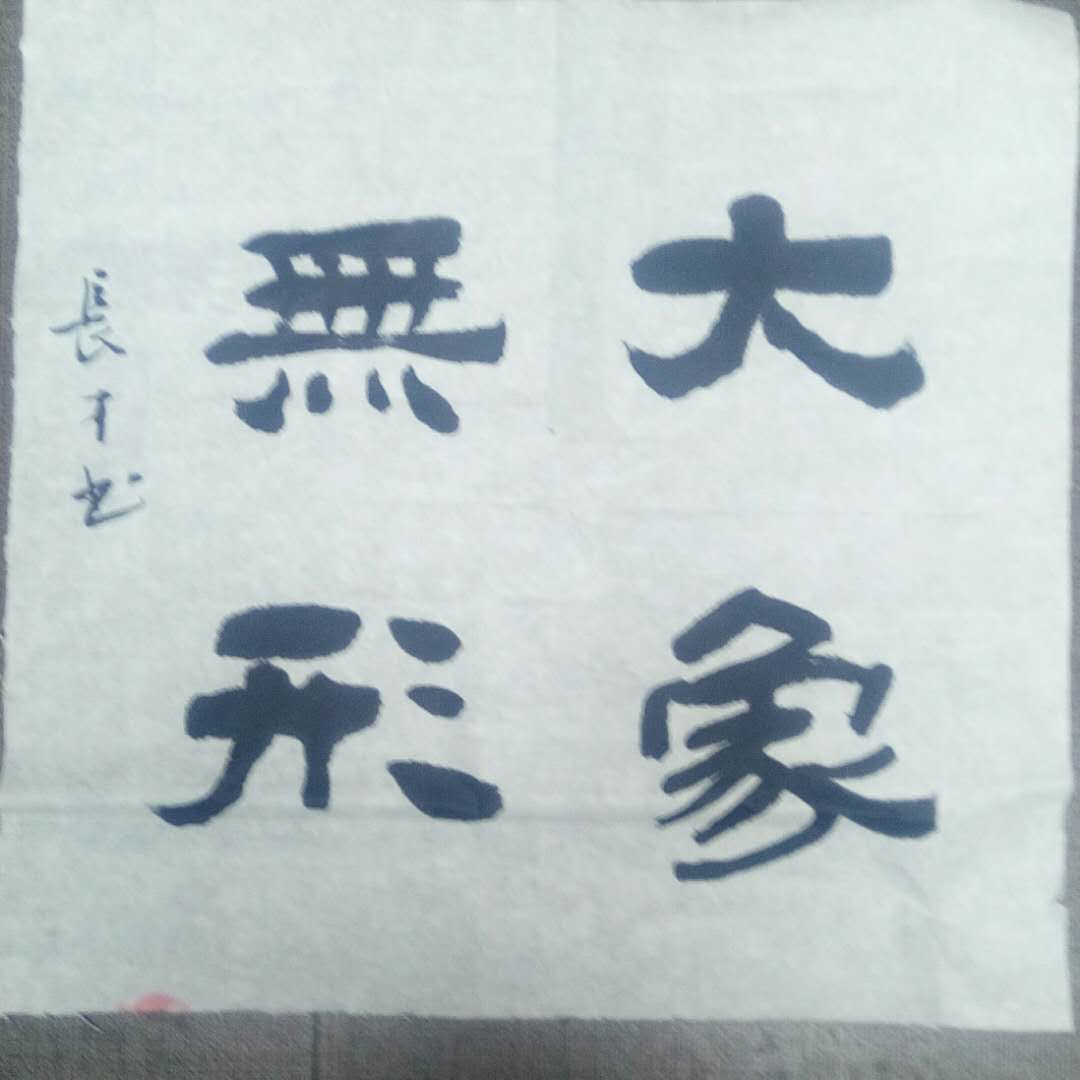 大象
無形
長才书